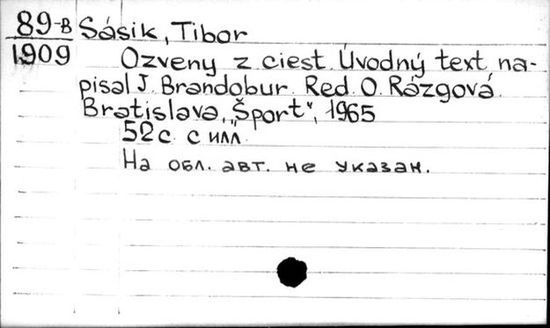 89-B Sásik, Tibor
1909 Ozveny z ciest. Úvodný text na-
písal J. Brandobur. Red. O. Rázgová.
Bratislava, „Šport“, 1965
52 с. с илл.
На обл. авт. не указан.